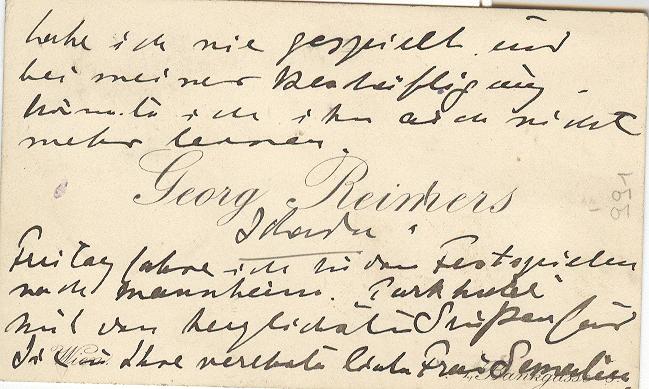 habe ich nie gespielt und
bei meiner Beschäftigung
könnte ich ihn auch nicht
mehr lernen.
Georg Reimers
Schade!
Freitag fahre ich zu den Festspielen
nach Mannheim. "Parkhotel"
mit den herzlichsten Grüßen für
Sie u Ihre verehrte liebe Frau Gemalin
Wien.
991